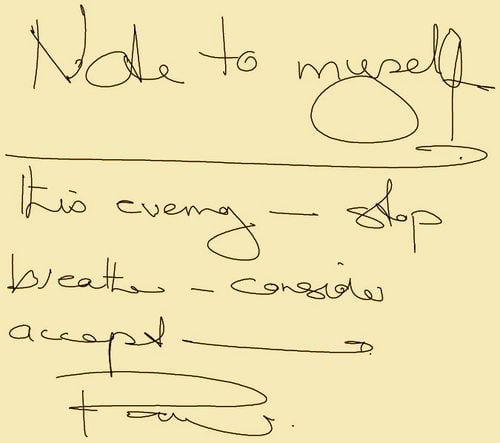 Note to myself
this evening — stop
breathe - consider
accept